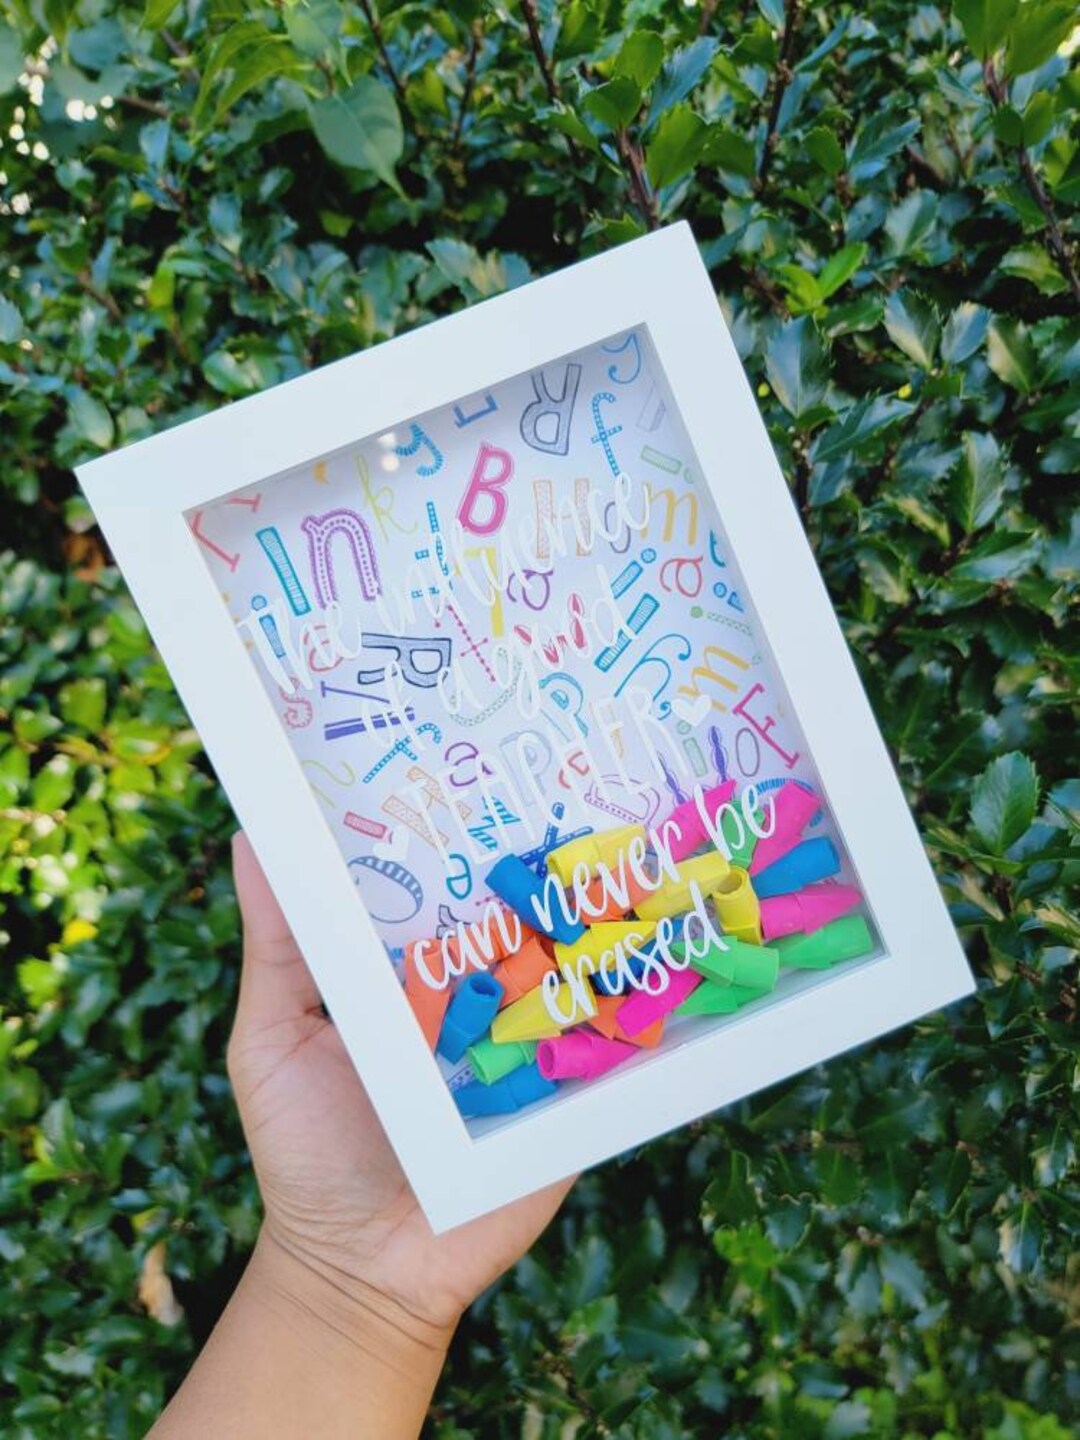 The influence
of a good
TEACHER
can never be
erased